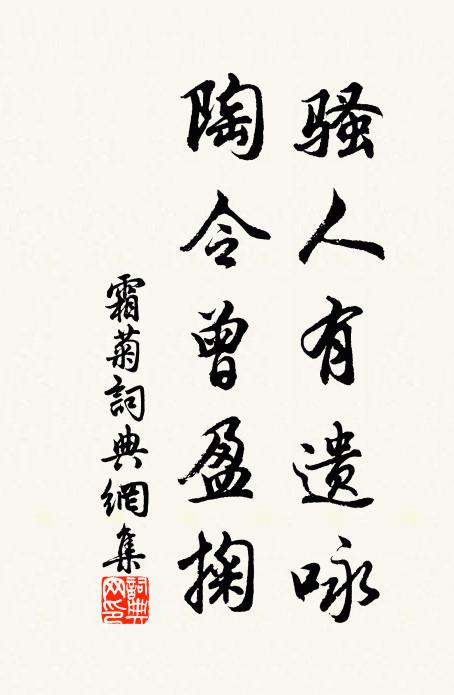 骚人有遗咏
陶令曾盈掬
霜菊詞典網集
詞典网印